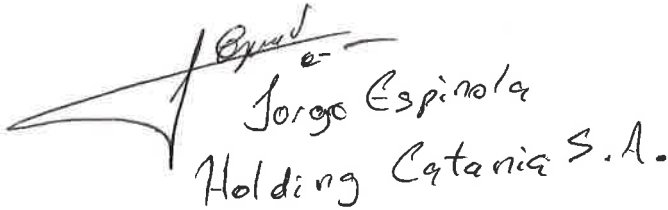 Jorge Espinola
Holding Catania S.A.